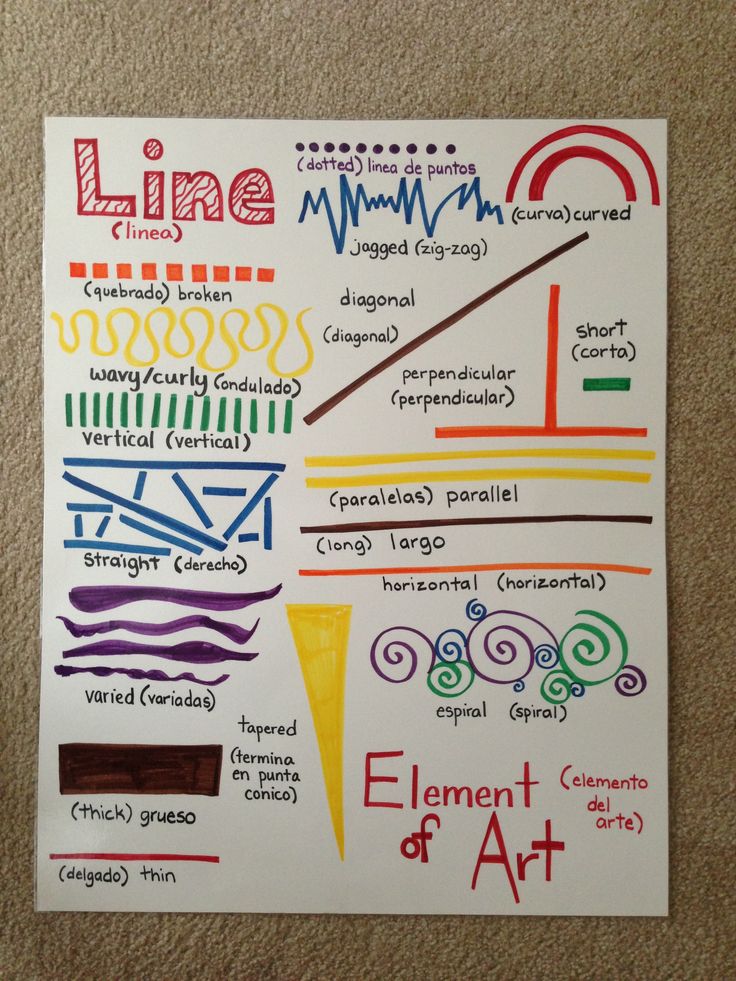 Line
(linea)
(dotted) linea de puntos
jagged (zig-zag)
(curva) curved
(quebrado) broken
wavy/curly (ondulado)
vertical (vertical)
straight (derecho)
varied (variadas)
(thick) grueso
(delgado) thin
diagonal
(diagonal)
perpendicular
(perpendicular)
short
(corta)
(paralelas) parallel
(long) largo
horizontal (horizontal)
tapered
(termina
en punta
conico)
espiral (spiral)
Element
of
Art
(elemento
del
arte)